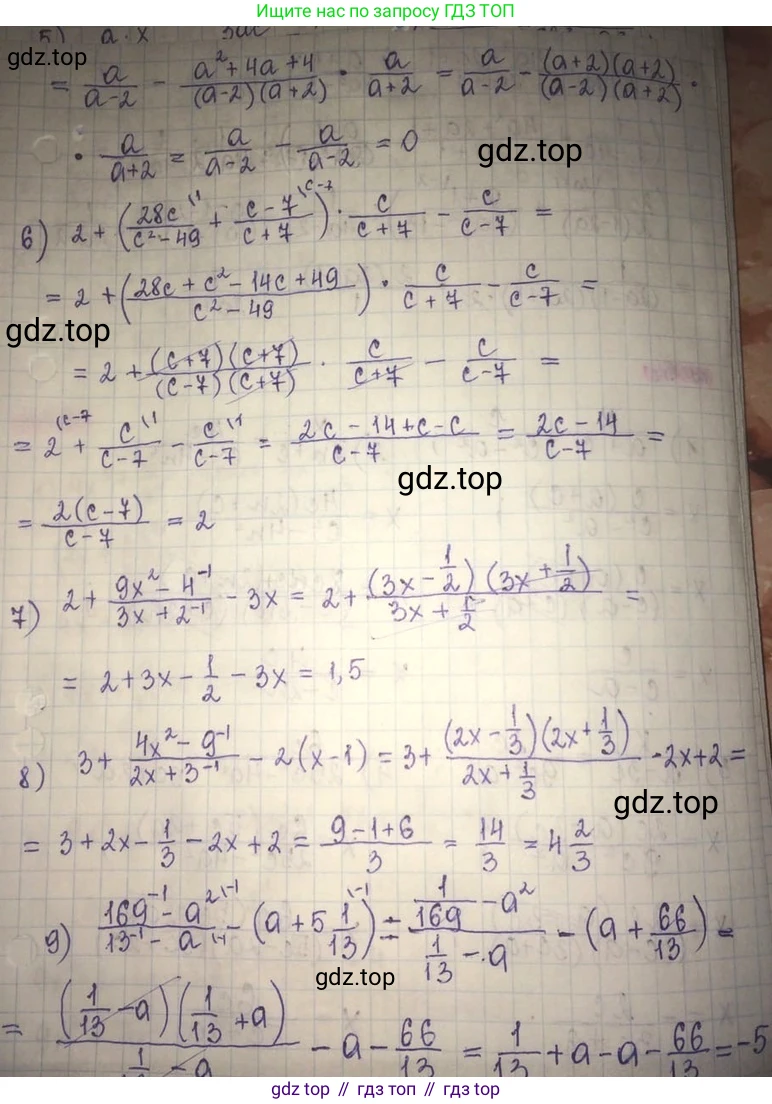 Ищите нас по запросу ГДЗ ТОП
5) a · x
gdz.top
= a/(a-2) - (a²+4a+4)/((a-2)(a+2)) · a/(a+2) = a/(a-2) - ((a+2)(a+2))/((a-2)(a+2)) ·
· a/(a+2) = a/(a-2) - a/(a-2) = 0
gdz.top
6) 2 + (28c/(c²-49) \1 + (c-7)/(c+7) \c-7) · c/(c+7) - c/(c-7) =
= 2 + ((28c + c² - 14c + 49)/(c² - 49)) · c/(c+7) - c/(c-7) =
gdz.top
= 2 + ((c+7)(c+7))/((c-7)(c+7)) · c/(c+7) - c/(c-7) =
= 2 \c-7 + c/(c-7) \1 - c/(c-7) \1 = (2c - 14 + c - c)/(c-7) = (2c - 14)/(c-7) =
gdz.top
= 2(c-7)/(c-7) = 2
7) 2 + (9x² - 4⁻¹)/(3x + 2⁻¹) - 3x = 2 + ((3x - 1/2)(3x + 1/2))/(3x + 1/2) =
= 2 + 3x - 1/2 - 3x = 1,5
8) 3 + (4x² - 9⁻¹)/(2x + 3⁻¹) - 2(x-1) = 3 + ((2x - 1/3)(2x + 1/3))/(2x + 1/3) - 2x + 2 =
gdz.top
= 3 + 2x - 1/3 - 2x + 2 = (9 - 1 + 6)/3 = 14/3 = 4 2/3
9) (169⁻¹ - a²)/(13⁻¹ - a) - (a + 5 1/13) = (1/169 - a²)/(1/13 - a) - (a + 66/13) =
gdz.top
= ((1/13 - a)(1/13 + a))/(1/13 - a) - a - 66/13 = 1/13 + a - a - 66/13 = -5
gdz top // гдз топ // gdz.top